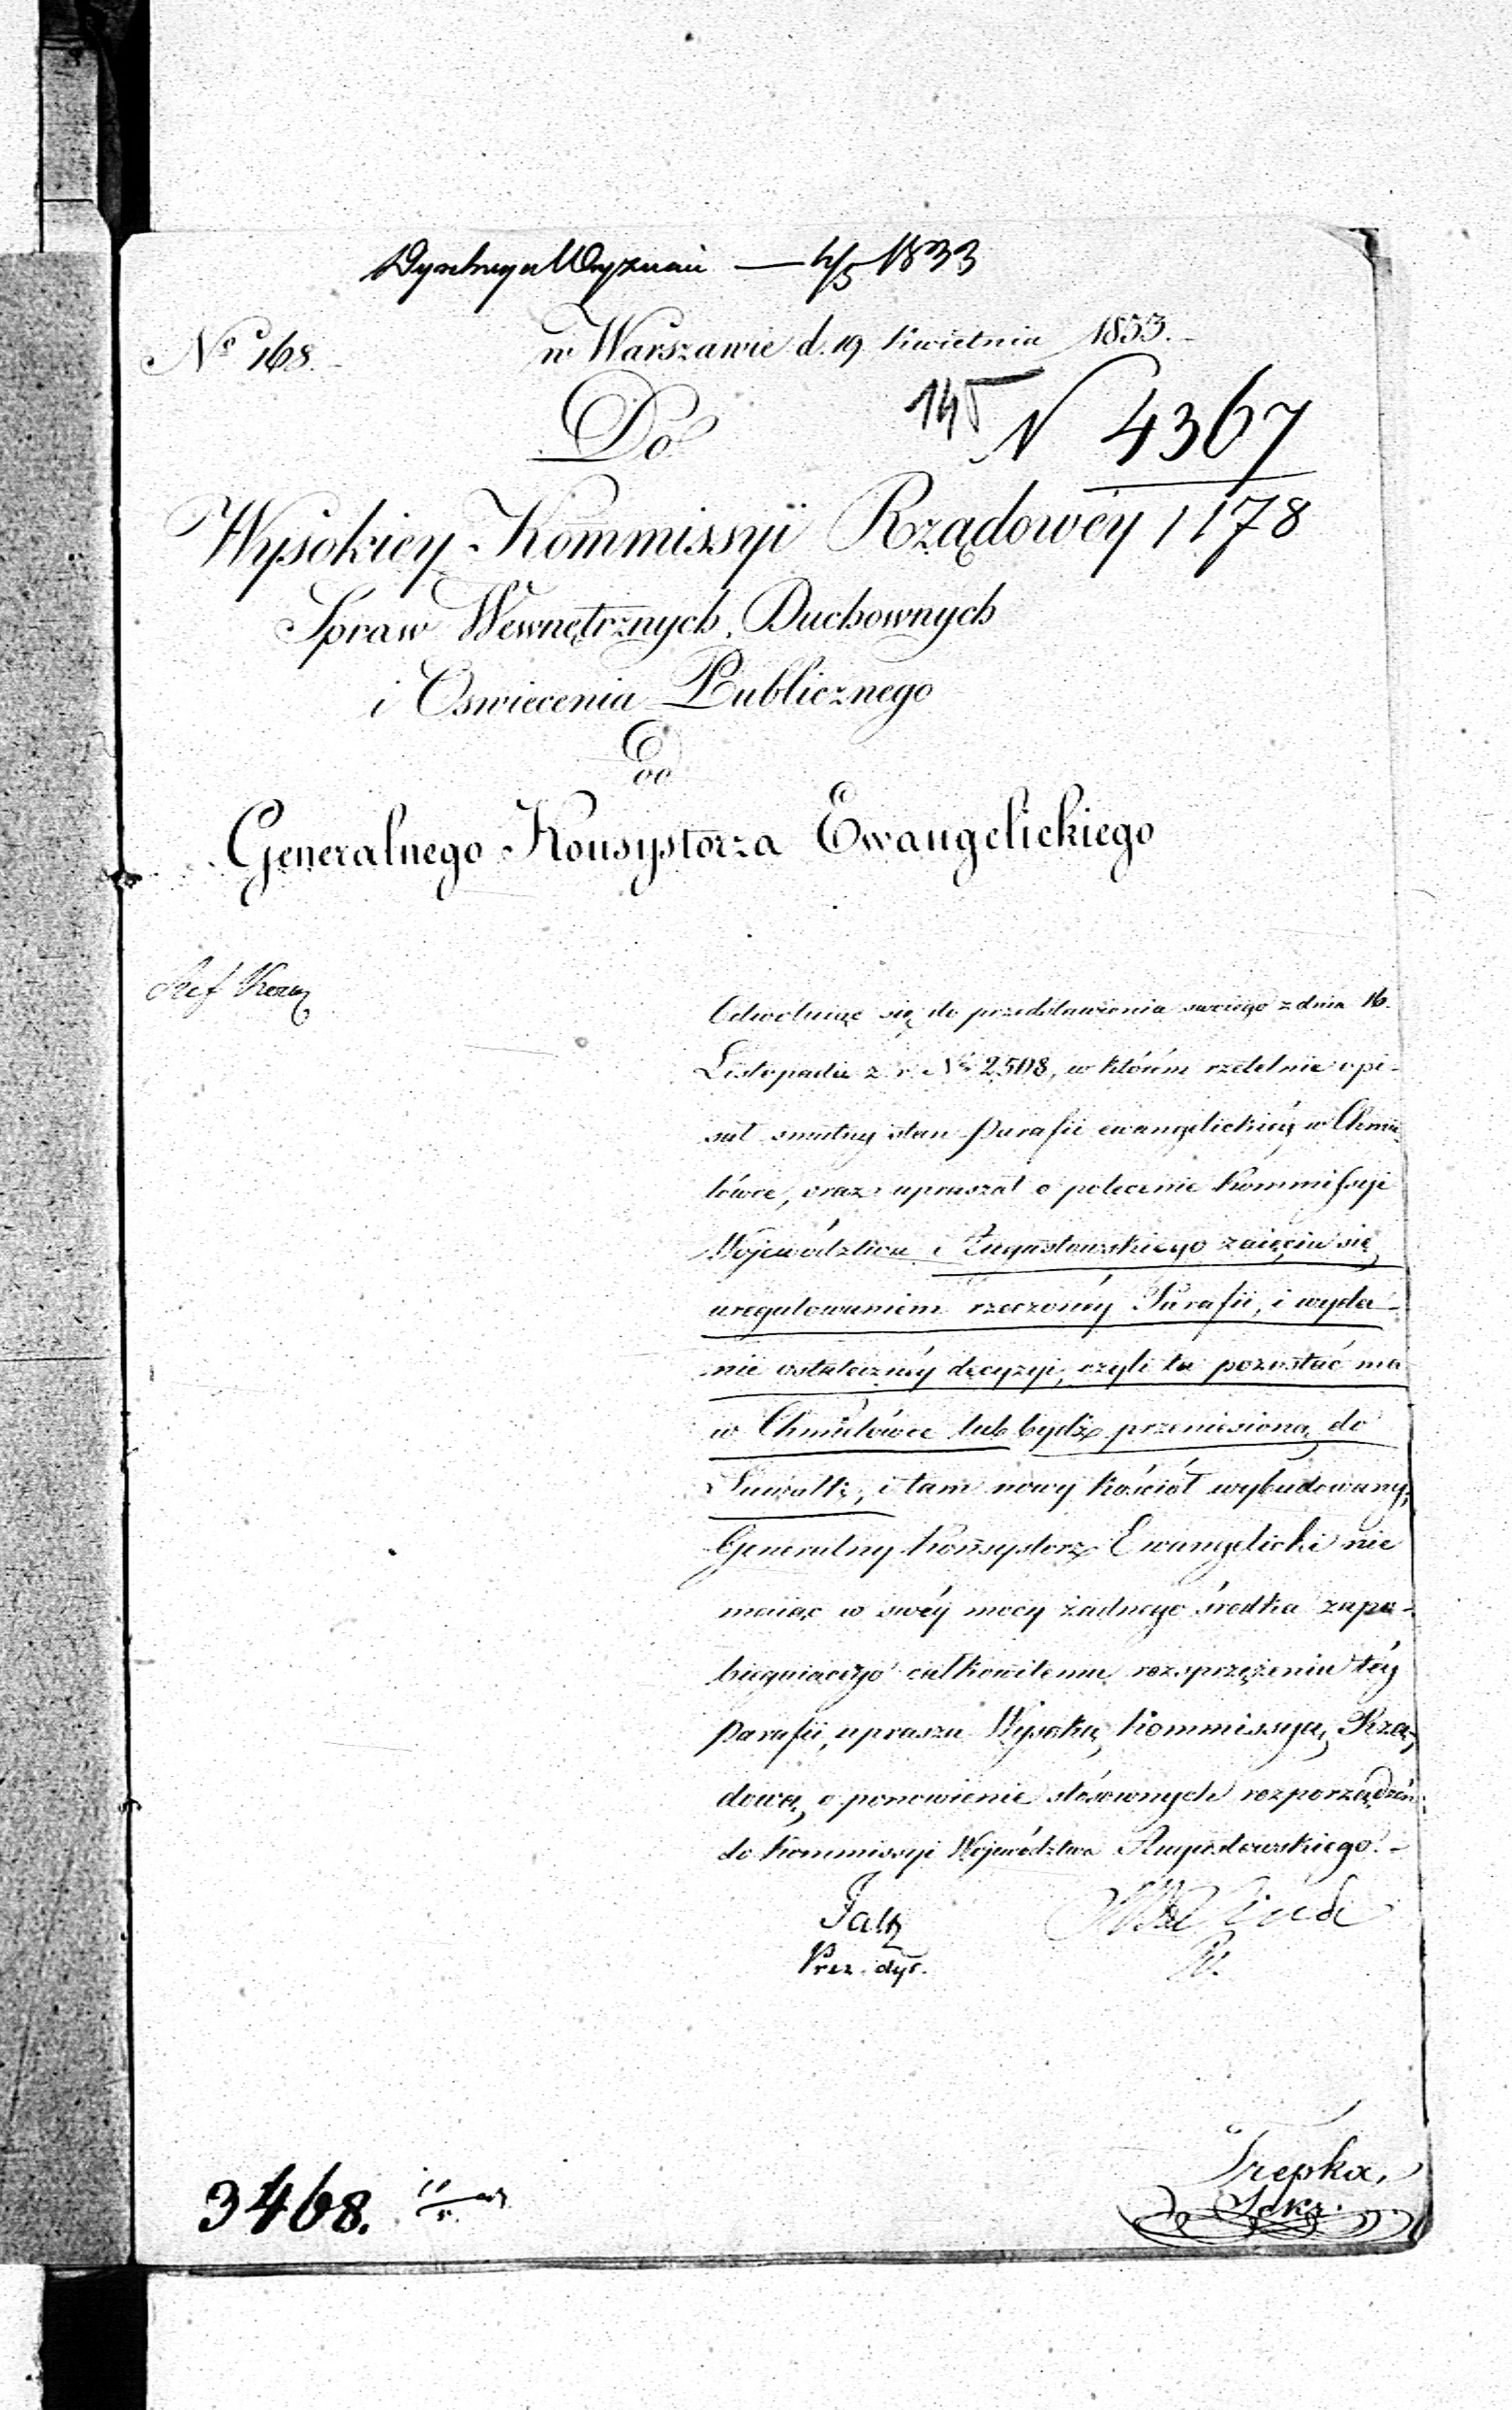 Wyznań — 4/5 1833
No 168. w Warszawie d. 19 Kwietnia 1833.
Do
145 N 4367
Wysokiey Kommissyi Rządowéy 1178
Spraw Wewnętrznych, Duchownych
i Oswiecenia Publicznego
Od
Generalnego Konsystorza Ewangelickiego
Odwołuiąc się do przedstawienia swoiego z dnia 16.
Listopada z. r. No 2508, w którém rzetelnie opi-
sał smutny stan Parafii ewangelickiéy w Chmie-
lówce, oraz upraszał o polecenie Kommissyi
Województwa Augustowskiego zaięcia się
uregulowaniem rzeczonéy Parafii, i wyda-
nie ostatecznéy decyzyi, czyli ta pozostać ma
w Chmielówce lub bydź przeniesioną do
Suwałk, i tam nowy kościół wybudowany;
Generalny Konsystorz Ewangelicki nie
maiąc w swéy mocy żadnego środka zapo-
biegaiącego całkowitemu rozprzężeniu téy
Parafii, uprasza Wysoką Kommissyą Rzą-
dową, o ponowienie stósownych rozporządzeń
do Kommissyi Województwa Augustowskiego. -
Prez. dyr.
Trepka,
Sekr.
3468.